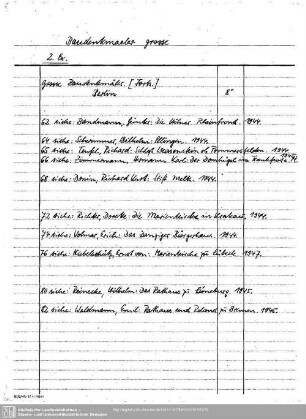 Baudenkmaeler grosse
2. Ex.
Grosse Baudenkmäler. [Forts.]
Berlin 8°
62 siehe: Bandmann, Günter: Die Kölner Rheinfront. 1944.
64 siehe: Schwemmer, Wilhelm: 1944.
65 siehe: Teufel, Richard: Schloß Weissenstein ob Pommersfelden. 1944.
66 siehe: Zimmermann, Hermann Karl: Der Domhügel in Frankfurt a. M.
68 siehe: Donin, Richard Kurt: Stift Melk. 1944.
72 siehe: Richter, Dorothe: Die Marienkirche in Krakau, 1944.
74 siehe: Volmar, Erich: Das Danziger Bürgerhaus. 1944.
76 siehe: Ernst von: Marienkirche zu Lübeck. 1947.
80 siehe: Reinecke, Wilhelm: Das Rathaus zu Lüneburg. 1945.
82 siehe: Waldmann, Emil: Rathaus und Roland zu Bremen. 1945.